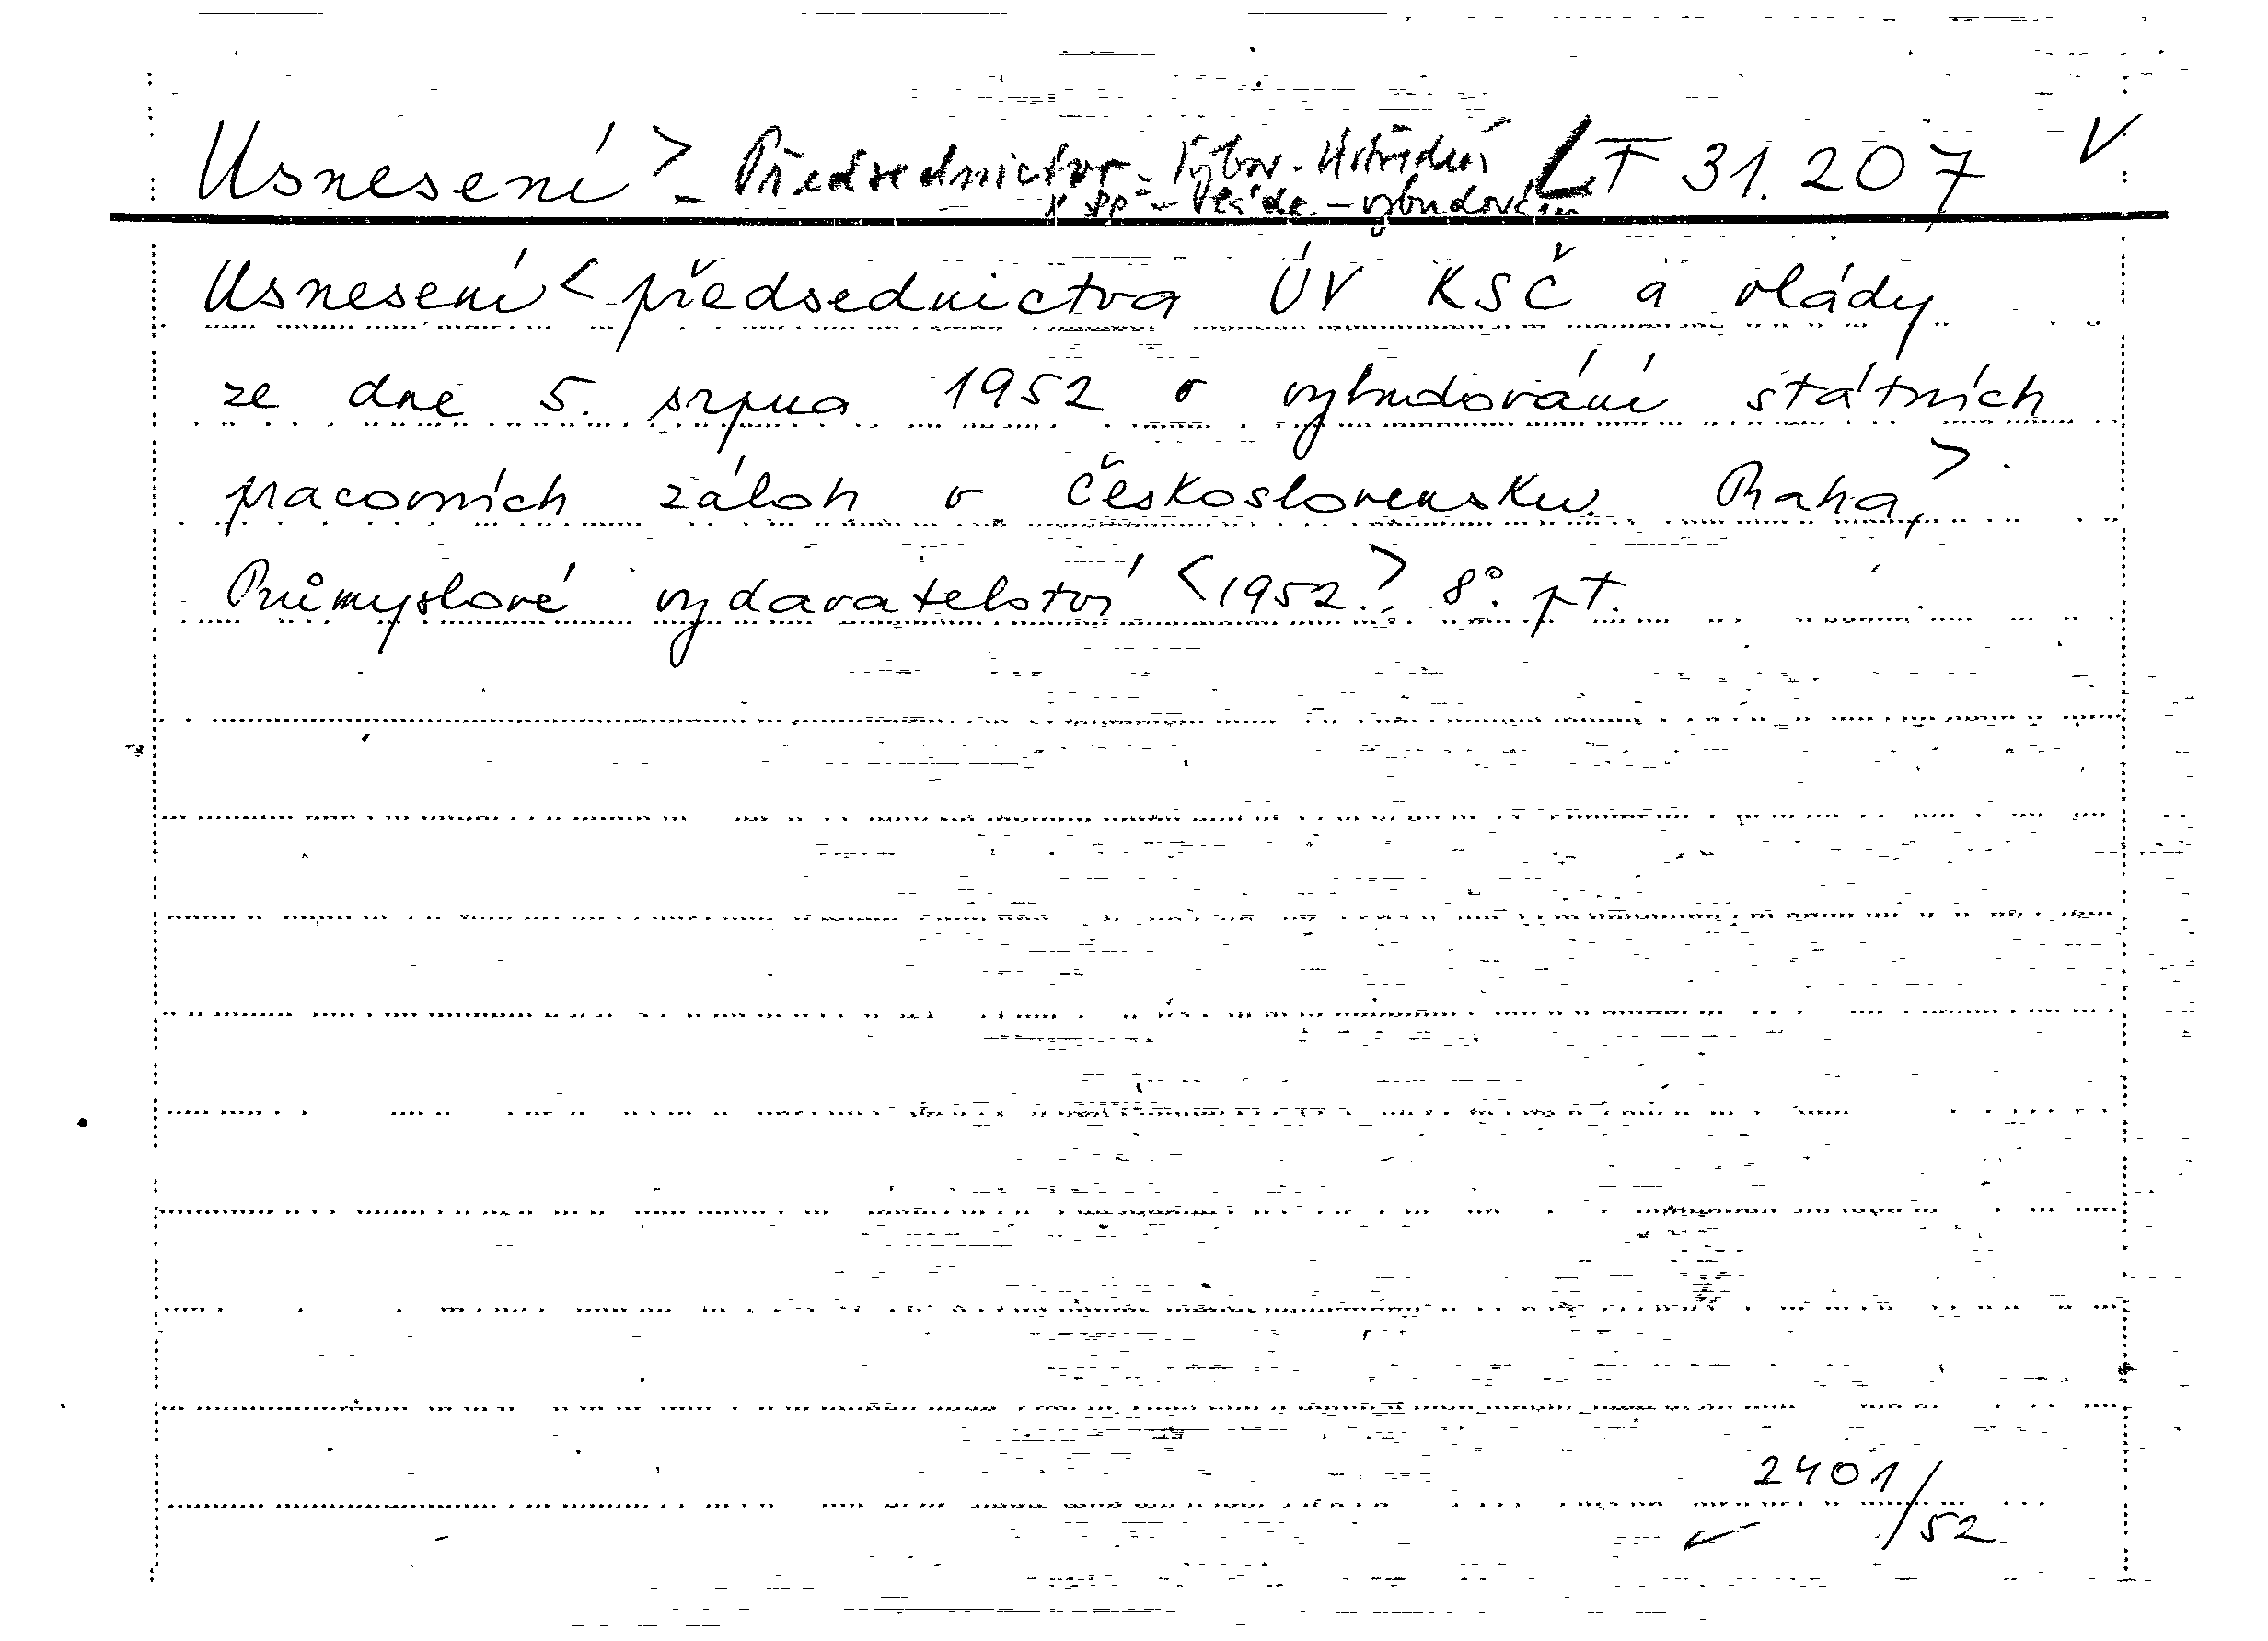 Usnesení > - Předsednictvo - Výbor - Ústřední LT 31.207 V
- vybudování
Usnesení < předsednictva ÚV KSČ a vlády
ze dne 5. srpna 1952 o vybudování státních
pracovních záloh v Československu. Praha, >
Průmyslové vydavatelství < 1952. > 8°. pt.
2401/52